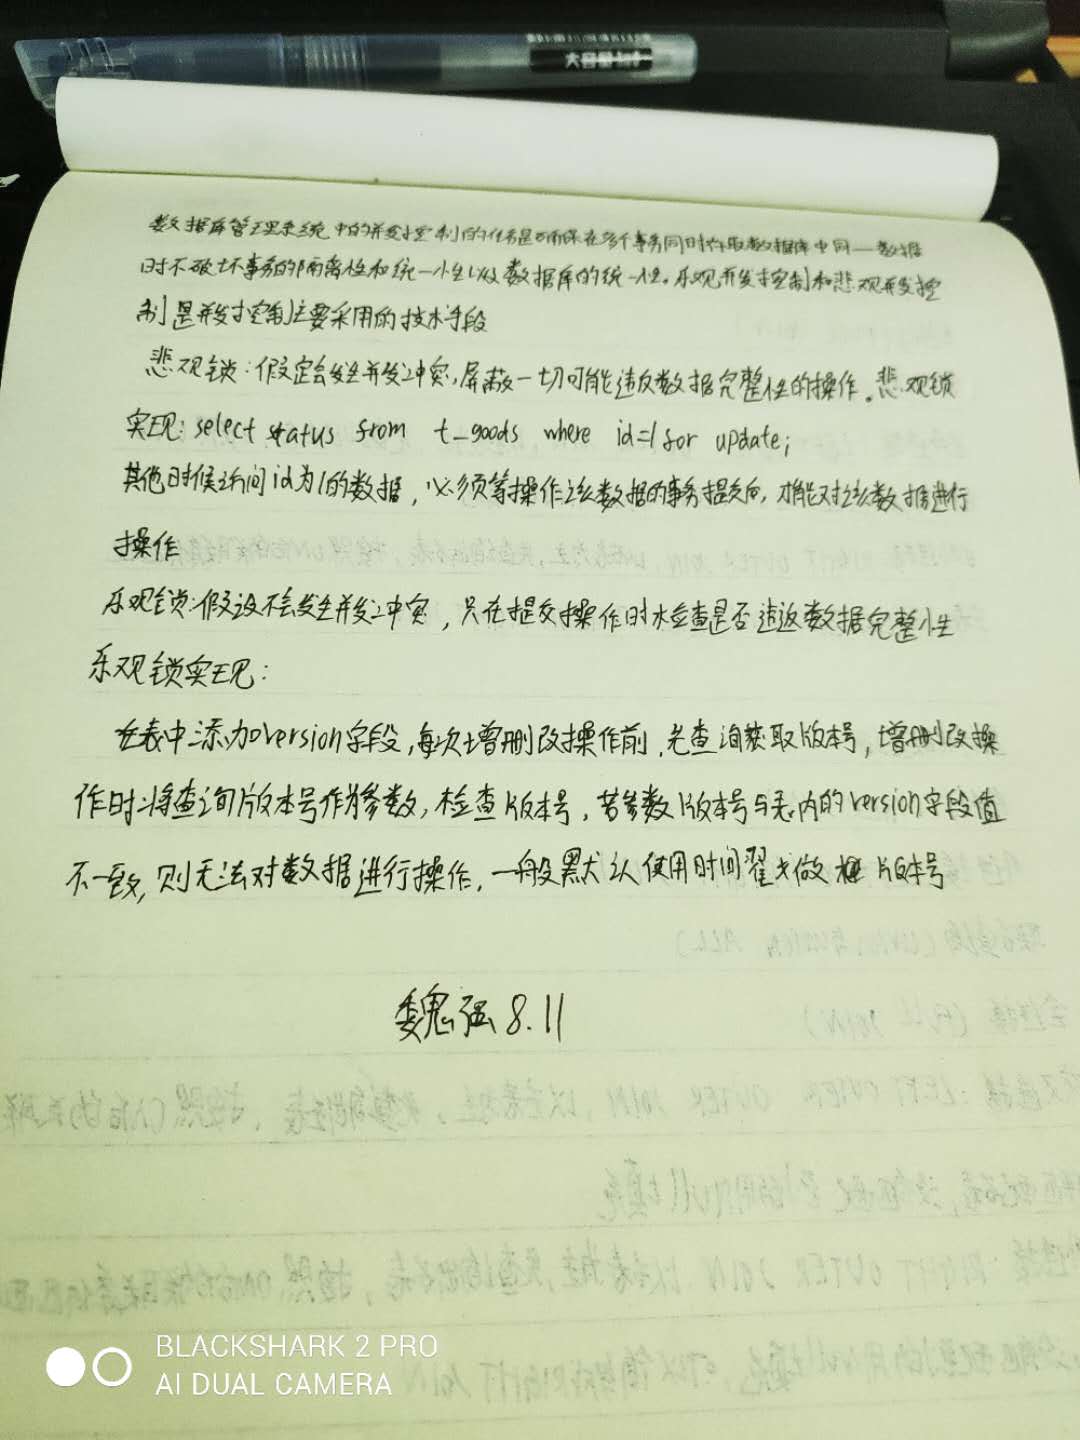 大容量
数据库管理系统中的并发控制的任务是确保在多个事务同时存取数据库中同一数据
时不破坏事务的隔离性和统一性以及数据库的统一性。乐观并发控制和悲观并发控
制是并发控制主要采用的技术手段
悲观锁:假定会发生并发冲突,屏蔽一切可能违反数据完整性的操作。悲观锁
实现: select status from t_goods where id=1 for update;
其他时候访问id为1的数据,必须等操作该数据的事务提交后,才能对该数据进行
操作
乐观锁:假设不会发生并发冲突,只在提交操作时检查是否违返数据完整性
乐观锁实现:
在表中添加version字段,每次增删改操作前,先查询获取版本号,增删改操
作时将查询版本号作为参数,检查版本号,若参数版本号与表内的version字段值
不一致,则无法对数据进行操作,一般默认使用时间戳做 版本号
魏强 8.11
BLACKSHARK 2 PRO
AI DUAL CAMERA